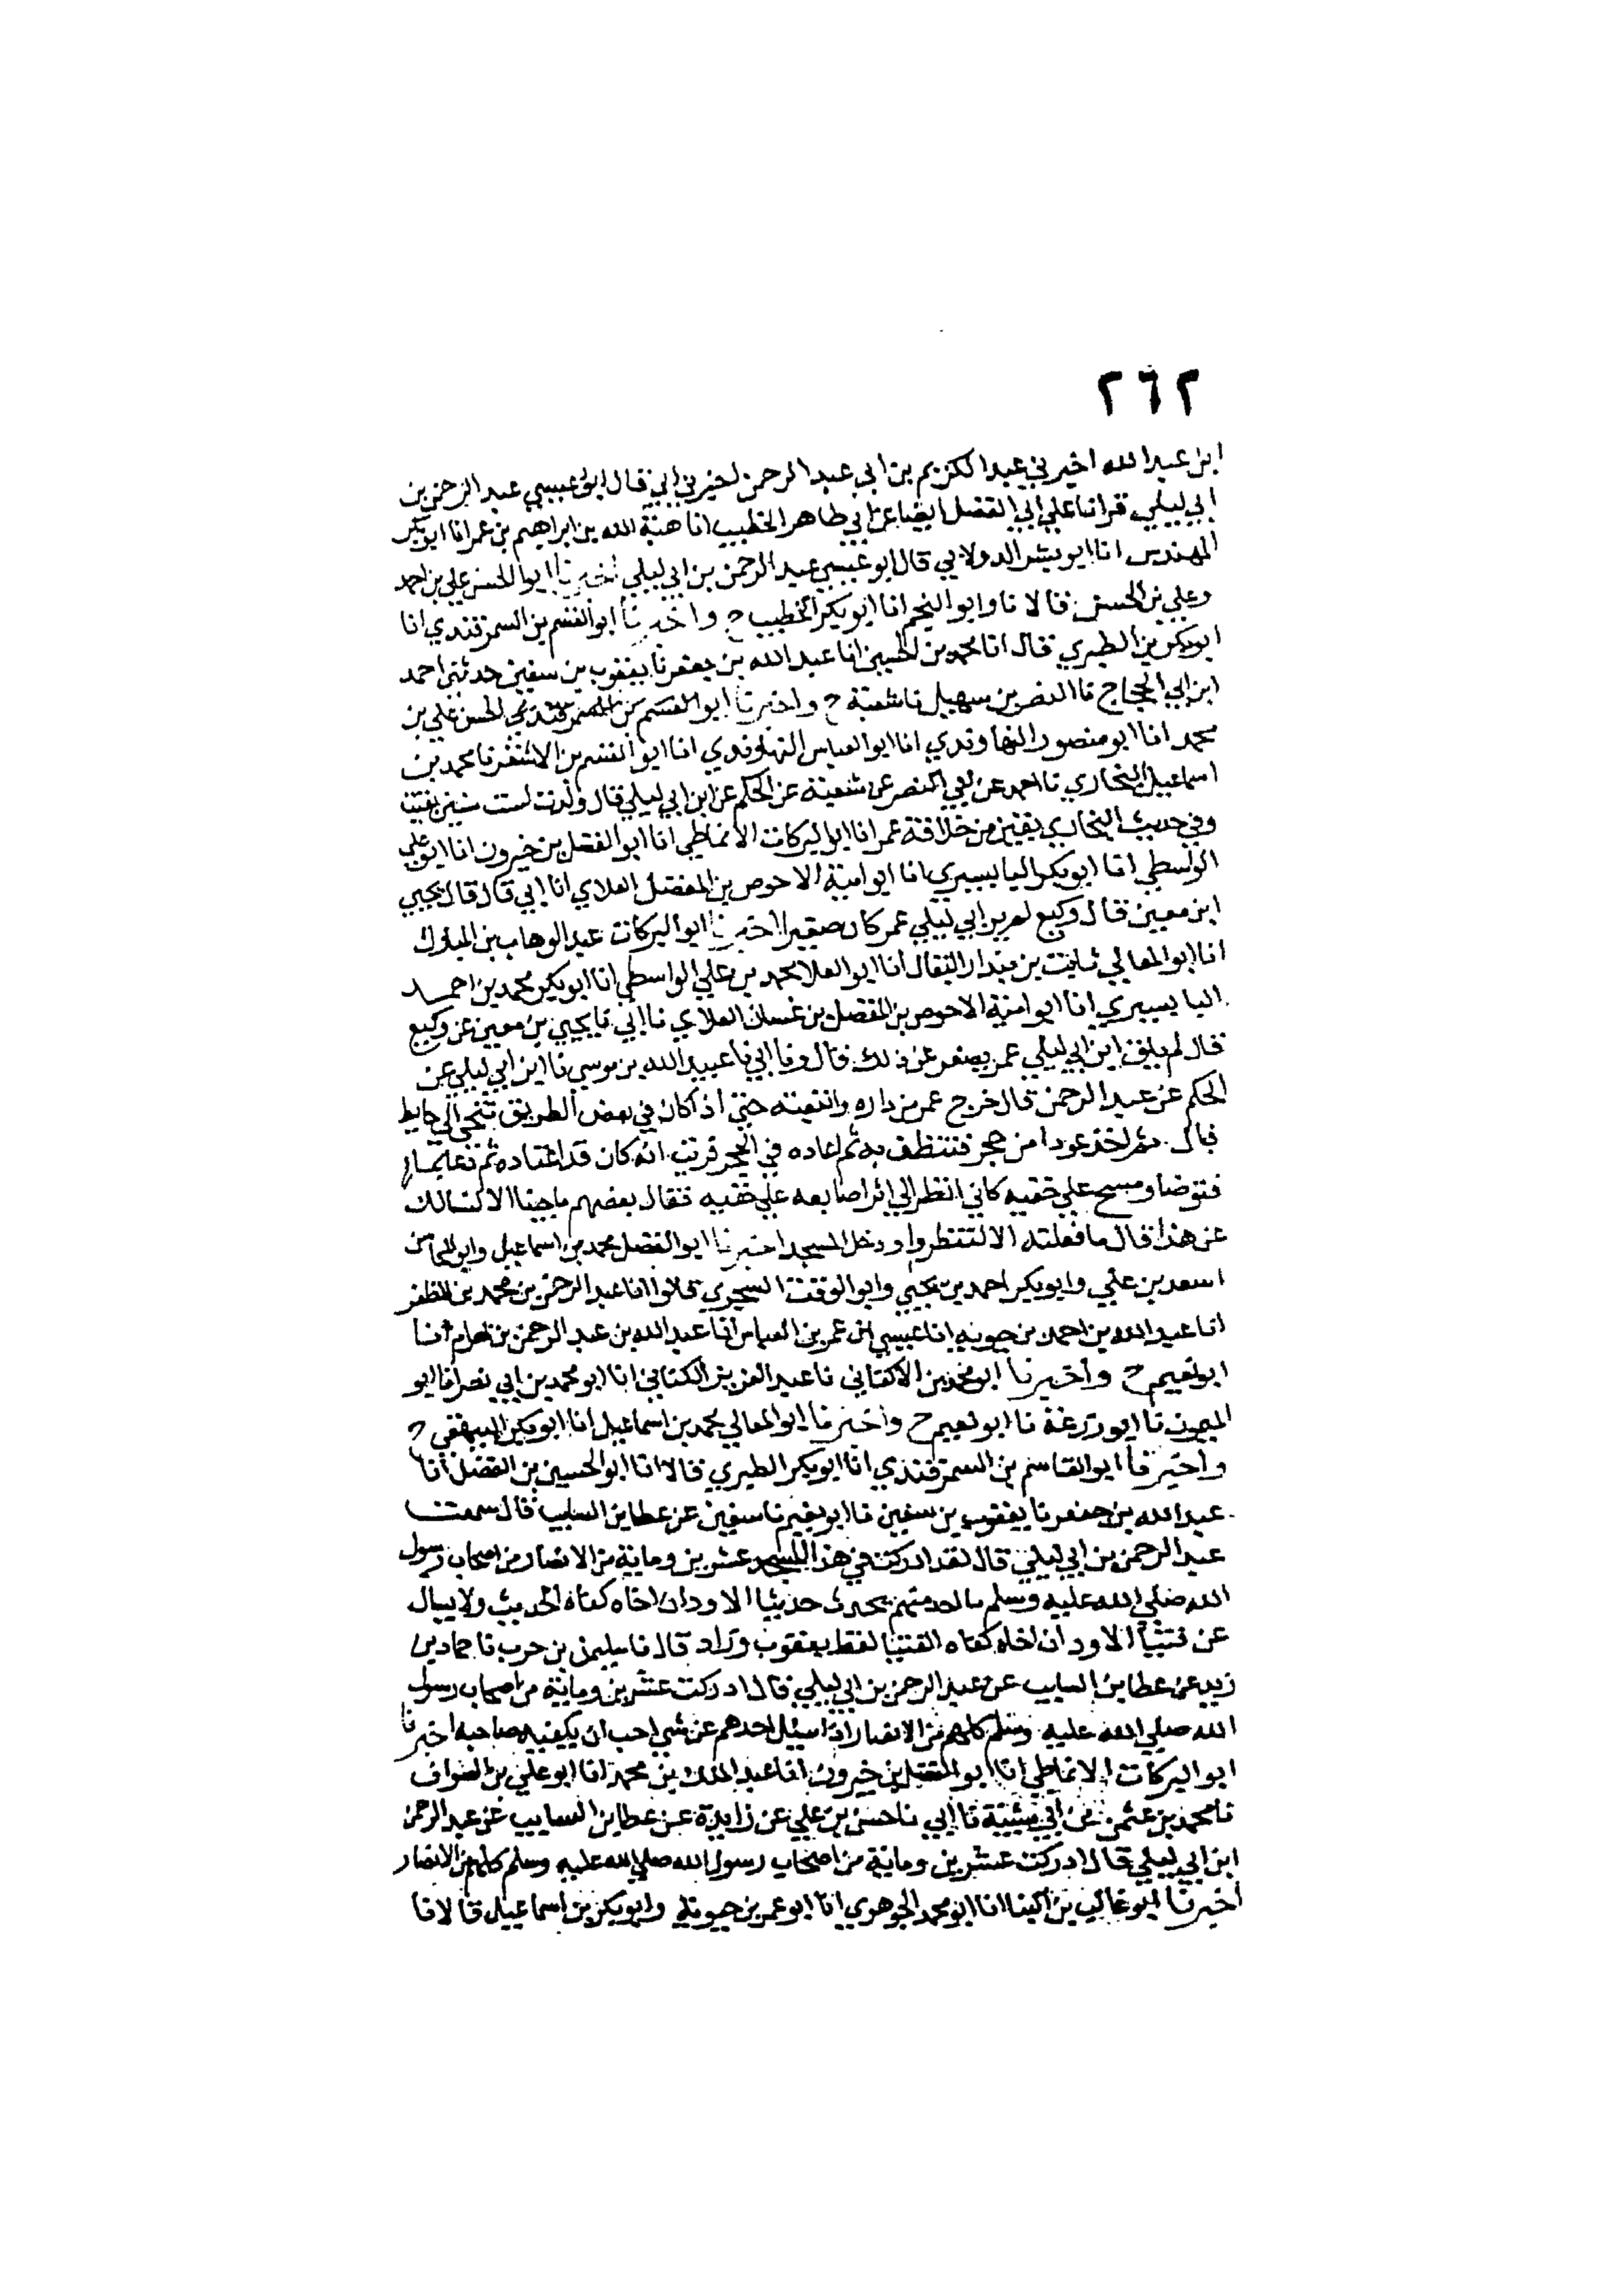 ٢٦٢
ابن عبد الله اخبرني عبد الكريم بن ابي عبد الرحمن اخبرني ابي قال ابو عيسي عبد الرحمن بن
ابي ليلي قرانا علي ابي الفضل ايضا عن ابي طاهر الخطيب انا هبة الله بن ابراهيم بن عمر انا ابو بكر
المهندس انا ابو بشر الدولابي قال ابو عيسي عبد الرحمن بن ابي ليلي اخبرنا ابو الحسن علي بن احمد
وعلي بن الحسن قالا نا وابو النجم انا ابو بكر الخطيب ح واخبرنا ابو القسم بن السمرقندي انا
ابو بكر بن الطبري قال انا محمد بن الحسين انا عبد الله بن جعفر نا يعقوب بن سفين حدثني احمد
ابن ابي الحجاج نا النضر بن سهيل نا شعبة ح واخبرنا ابو القسم بن السمرقندي الحسن علي بن
محمد انا ابو منصور النهاوندي انا ابو العباس النهاوندي انا ابو القسم بن الاشقر نا محمد بن
اسماعيل البخاري نا احمد عن ابي النضر عن شعبة عن الحكم عن ابن ابي ليلي قال ولدت لست سنين بقيتا
وفي حديث البخاري بقين من خلافة عمر انا ابو البركات الانماطي انا ابو الفضل بن خيرون انا ابو علي
الواسطي انا ابو بكر البابسيري انا ابو امية الاحوص بن المفضل الغلابي انا ابي قال قال يحيي
ابن معين قال وكيع لم ير ابن ابي ليلي عمر كان صغيرا اخبرنا ابو البركات عبد الوهاب بن المبارك
انا ابو المعالي ثابت بن بندار البقال انا ابو العلا محمد بن علي الواسطي انا ابو بكر محمد بن احمد
البابسيري انا ابو امية الاحوص بن المفضل بن غسان الغلابي نا ابي نا يحيي بن معين عن وكيع
قال لم يلق ابن ابي ليلي عمر يصغر عن ذلك قال ونا ابي نا عبيد الله بن موسي نا ابن ابي ليلي عن
الحكم عن عبد الرحمن قال خرج عمر من داره واتبعته حتي اذا كان في بعض الطريق تنحي الي حايط
فبال ثم اخذ عودا من حجر فتنظف به ثم اعاده في الحجر قريت انه كان قد اعتاده ثم دعا بما
فتوضا ومسح علي خفيه كاني انظر الي اثر اصابعه علي خفيه فقال بعضهم ما جينا الا لنسالك
عن هذا قال ما فعلته الا لتنظروا ودخل المسجد اخبرنا ابو الفضل محمد بن اسماعيل وابو المحاسن
اسعد بن علي وابو بكر احمد بن يحيي وابو الوقت السجزي قالوا انا عبد الرحمن بن محمد بن المظفر
انا عبد الله بن احمد بن حمويه انا عيسي ابن عمر بن العباس انا عبد الله بن عبد الرحمن بن بهرام انا
ابو نعيم ح واخبرنا ابو محمد بن الاكفاني نا عبد العزيز الكتاني انا ابو محمد بن ابي نصر انا ابو
الميمون نا ابو زرعة نا ابو نعيم ح واخبرنا ابو المعالي محمد بن اسماعيل انا ابو بكر البيهقي ح
واخبرنا ابو القاسم بن السمرقندي انا ابو بكر الطبري قالا انا ابو الحسين بن الفضل انا
عبد الله بن جعفر نا يعقوب بن سفين نا ابو نعيم نا سفين عن عطا بن السايب قال سمعت
عبد الرحمن بن ابي ليلي قال لقد ادركت في هذا المسجد عشرين وماية من الانصار من اصحاب رسول
الله صلي الله عليه وسلم ما احد منهم يحدث حديثا الا ود ان اخاه كفاه الحديث ولا يسال
عن فتيا الا ود ان اخاه كفاه الفتيا لفظ يعقوب وزاد قال نا سليمن بن حرب نا حماد بن
زيد عن عطا بن السايب عن عبد الرحمن بن ابي ليلي قال ادركت عشرين وماية من اصحاب رسول
الله صلي الله عليه وسلم كلهم من الانصار اذا سيل احدهم عن شي احب ان يكفيه صاحبه اخبرنا
ابو البركات الانماطي انا ابو الفضل بن خيرون انا عبد الملك بن محمد انا ابو علي بن الصواف
نا محمد بن عثمن بن ابي شيبة نا ابي نا حسن بن علي عن زايدة عن عطا بن السايب عن عبد الرحمن
ابن ابي ليلي قال ادركت عشرين وماية من اصحاب رسول الله صلي الله عليه وسلم كلهم من الانصار
اخبرنا ابو غالب بن البنا انا ابو محمد الجوهري انا ابو عمر بن حيويه وابو بكر بن اسماعيل قالا نا